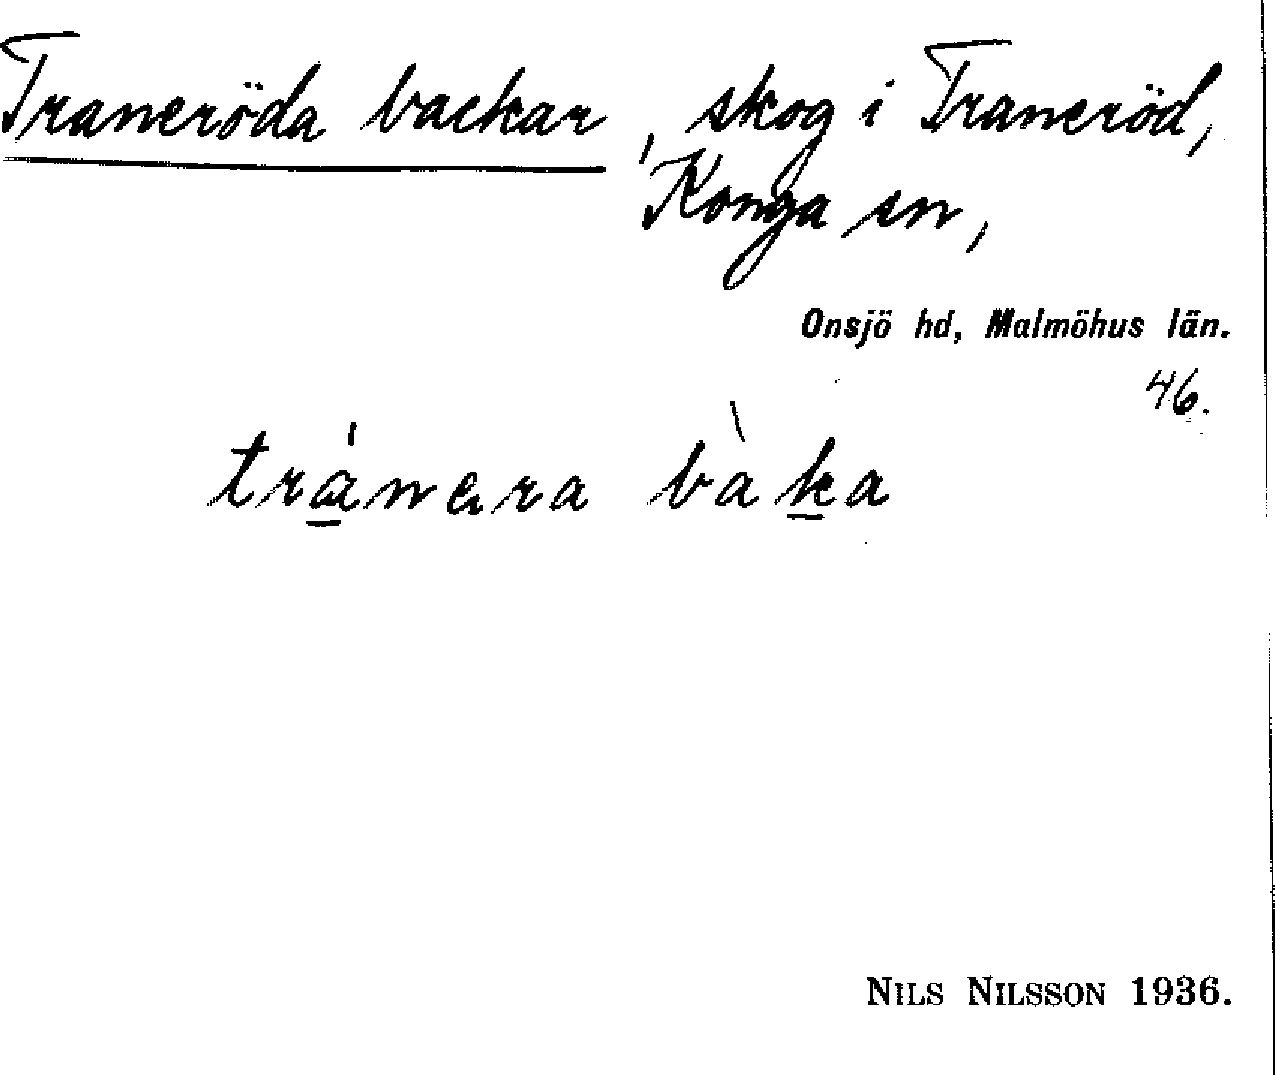 Traneröda backar, skog i Traneröd,
Konga sn,
Onsjö hd, Malmöhus län.
46.
tránera bàka
NILS NILSSON 1936.